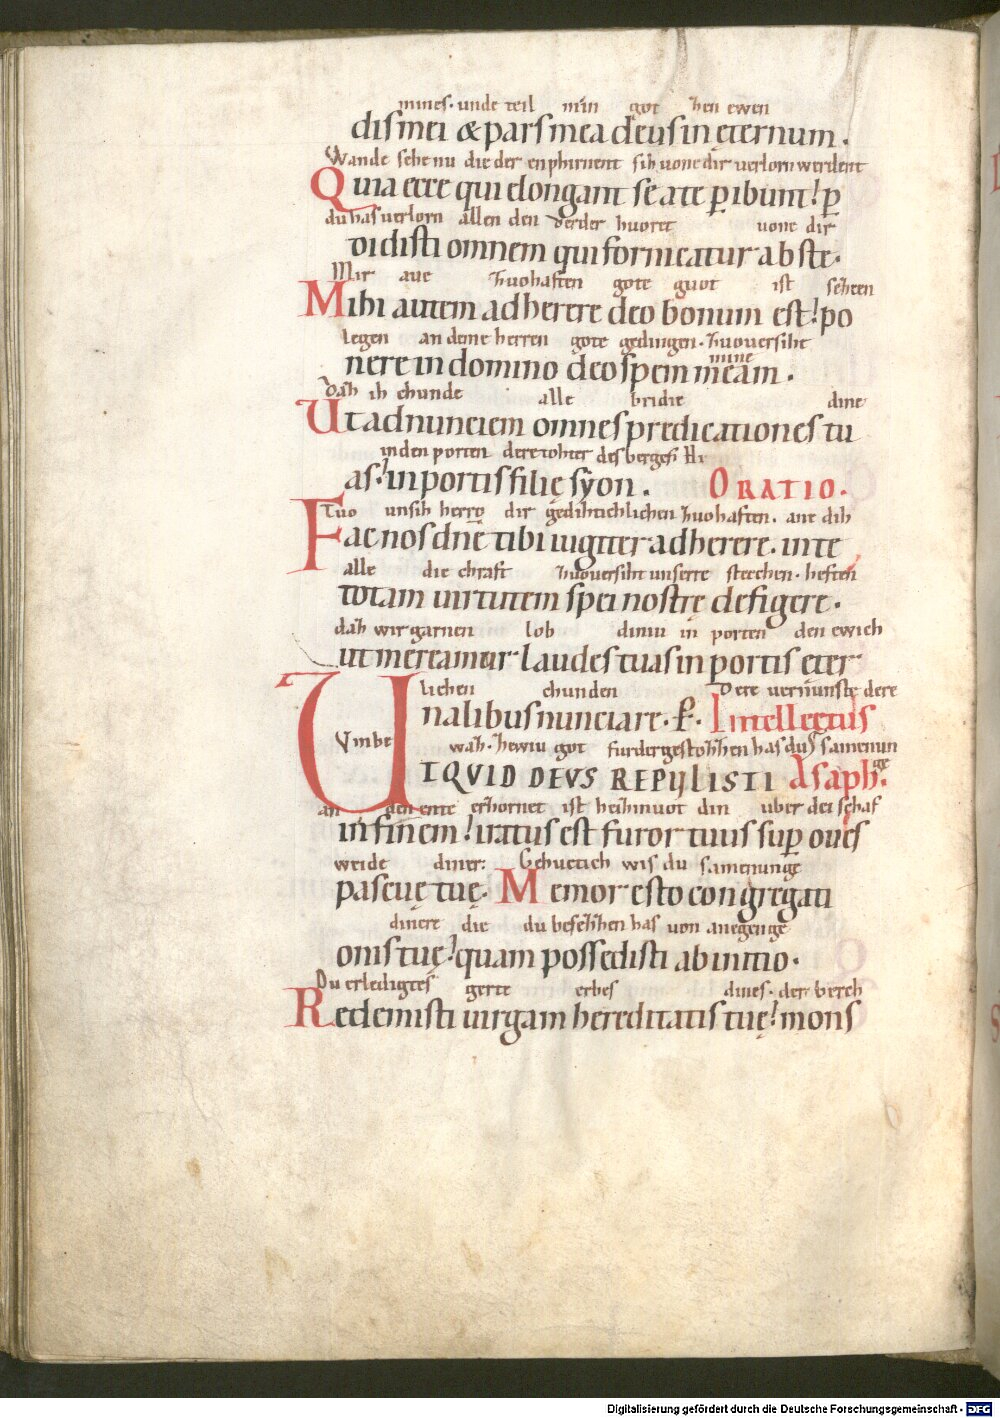 mines. unde teil min got hen ewen
dis mei & pars mea deus in ęternum.
Wande sehe nu die der enphirrent sih vone dir verlorn werdent
Quia ecce qui elongant se a te ꝑibunt! ꝑ
du has verlorn allen den der der huoret vone dir
didisti omnem qui fornicatur abs te.
Mir aue zuohaften gote guot ist sehcen
Mihi autem adherere deo bonum est! po
legen an deme herren gote gedingen. zuoversiht
mine
nere in domino deo spem meam.
Dah ih chunde alle bridie dine
Ut adnunciem omnes predicationes tu
in den porten dere tohter des berges
as! in portis filię syon. ORATIO.
Tuo unsih herro dir gedihtichlichen zuohaften. ane dih
Fac nos dn̄e tibi iugiter adherere. in te
alle die chraft zuoversiht unserre stecchen. heften
totam uirtutem spei nostrę defigere.
dah wir garnen lob diniu in porten den ewich
ut mereamur laudes tuas in portis eter
lichen chunden Dere vernunste dere
nalibus nunciare. Intellectus
Vmbe wah. zewiu got furder gestozzen has dus samenun
ge
UTQVID DEVS REPULISTI Asaph.
an den ente erzornet ist heizmuot din uber dei schaf
in finem! iratus est furor tuus suꝑ oues
weide diner: Gehuctich wis du samenunge
pascuę tuę. Memor esto congregati
dinere die du besezzen has von anegenge
onis tuę! quam possedisti ab initio.
Du erledigtes gerte erbes dines. der berch
Redemisti uirgam hereditatis tuę! mons
Digitalisierung gefördert durch die Deutsche Forschungsgemeinschaft - DFG